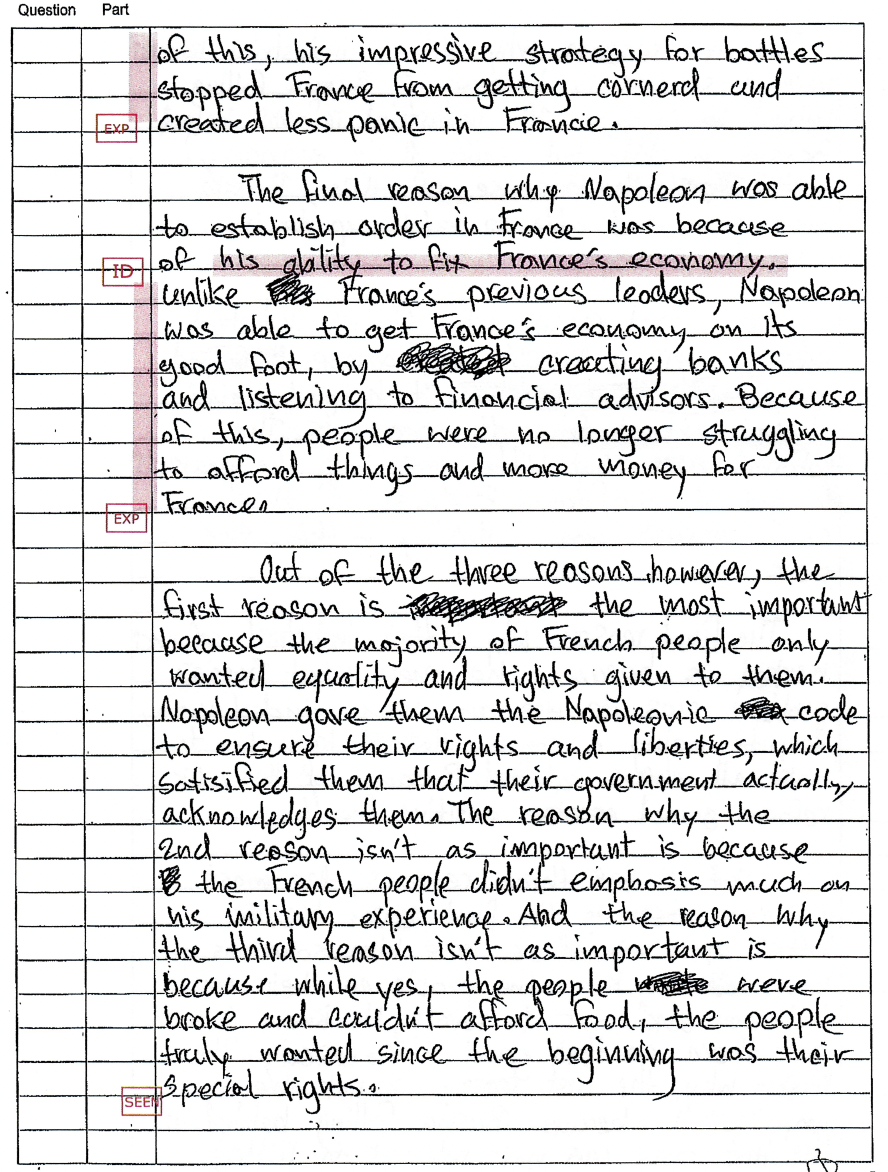 Question Part
of this, his impressive strategy for battles
stopped France from getting cornerd and
EXP created less panic in France.
The final reason why Napoleon was able
to establish order in France was because
ID of his ability to fix France's economy.
Unlike France's previous leaders, Napoleon
was able to get France's economy on its
good foot, by creating banks
and listening to financial advisors. Because
of this, people were no longer struggling
to afford things and more money for
EXP France.
Out of the three reasons however, the
first reason is the most important
because the majority of French people only
wanted equality and rights given to them.
Napoleon gave them the Napoleonic code
to ensure their rights and liberties, which
satisified them that their government actually
acknowledges them. The reason why the
2nd reason isn't as important is because
the French people didn't emphasis much on
his military experience. And the reason why
the third reason isn't as important is
because while yes, the people were
broke and couldn't afford food, the people
truly wanted since the beginning was their
SEEN special rights.